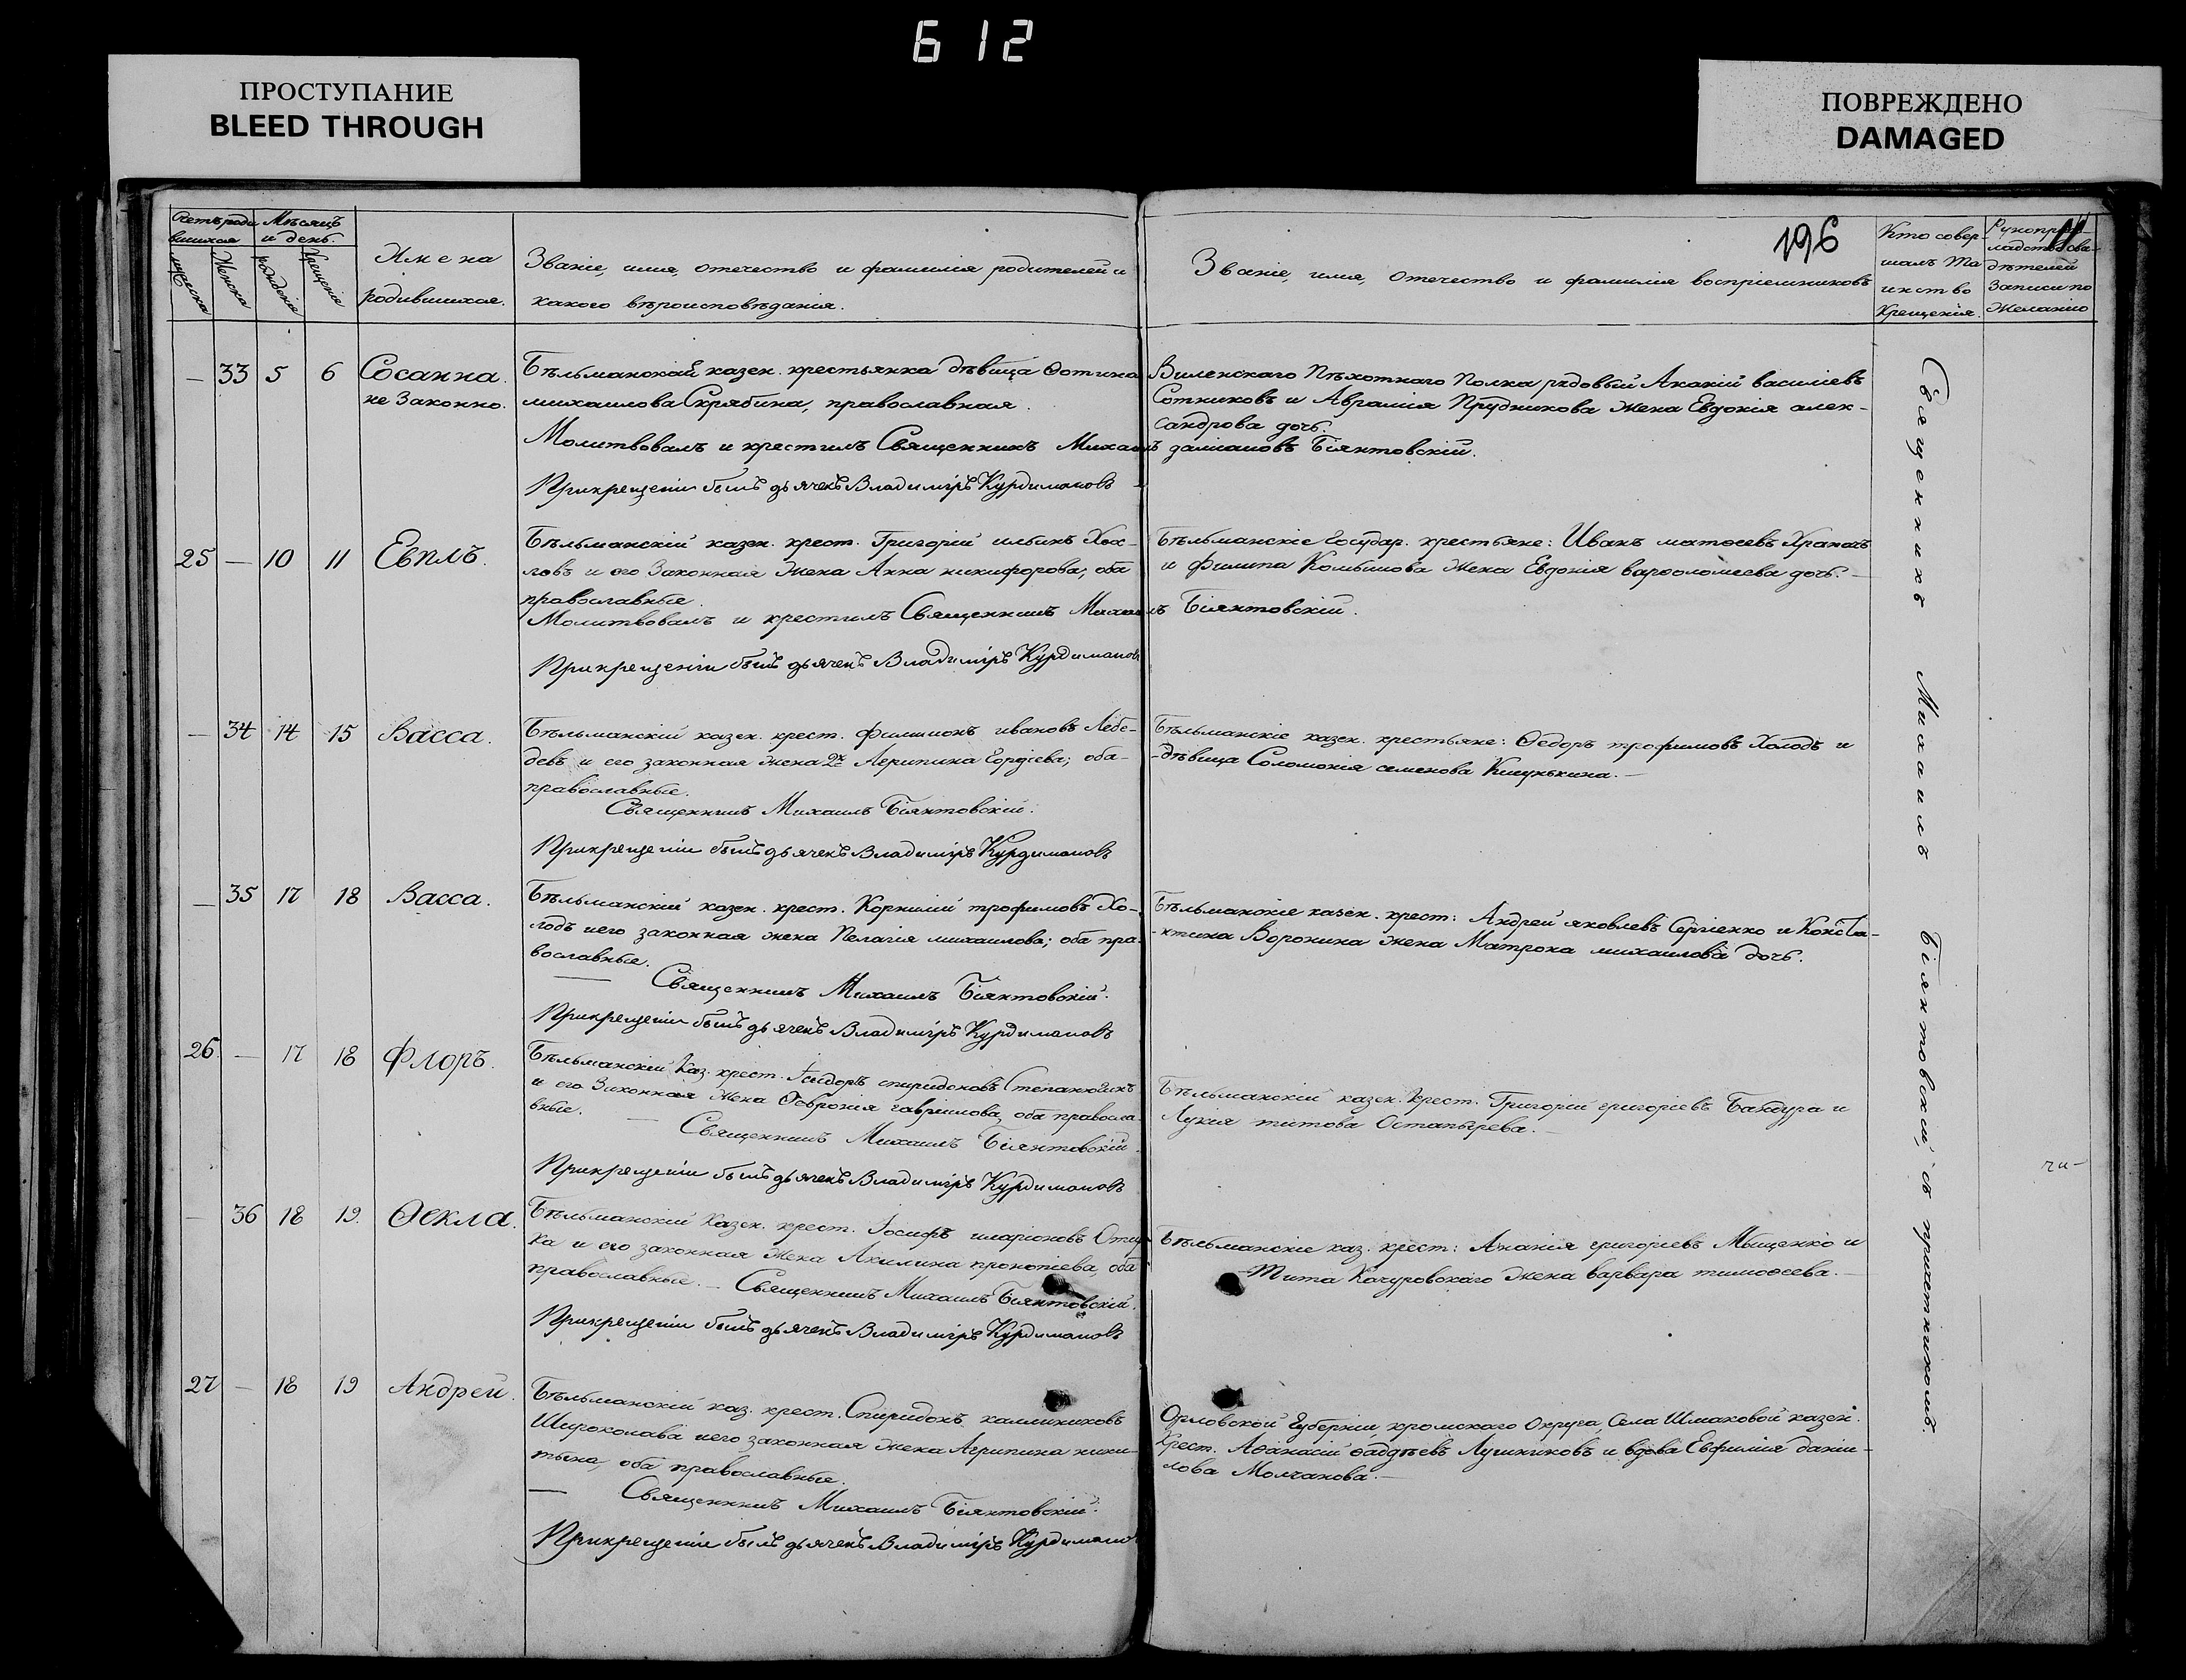 612
ПРОСТУПАНИЕ
BLEED THROUGH
ПОВРЕЖДЕНО
DAMAGED
196
Счетъ роди-
вшихся
мужеска
Женска
Мѣсяцъ
и день.
рожденія
Крещенія
Имена
родившихся.
Званіе, имя, отечество и фамилія родителей и
какого вѣроисповѣданія.
Званіе, имя, отечество и фамилія воспріемниковъ
Кто совер-
шалъ та
инство
Крещенія.
Рукопри-
дѣтелей
Записи по
желанію
— 33 5 6 Сосанна.
не Законно.
Бѣльманской казен. крестьянка дѣвица Фотина
михаилова Скрябина, православная.
Молитвовалъ и крестилъ Священникъ Михаилъ даміановъ Біянтовскій.
При крещеніи былъ дьячекъ Владиміръ Курдимановъ
Виленскаго Пѣхотнаго Полка рядовый Акакій василіевъ
Сотниковъ и Аврамія Прудникова жена Евдокія алек-
сандрова дочь.
25 — 10 11 Евплъ.
Бѣльманскій казен. крест. Григорій ильинъ Хох-
ловъ и его Законная жена Анна никифорова, оба
православные.
Молитвовалъ и крестилъ Священникъ Михаилъ Біянтовскій.
При крещеніи былъ дьячекъ Владиміръ Курдимановъ
Бѣльманскіе Государ. крестьяне: Иванъ матѳеевъ
и Филипа жена Евдокія варѳоломеева дочь.—
— 34 14 15 Васса.
Бѣльманскій казен. крест. Филимонъ ивановъ Лебе-
девъ и его законная жена Агрипина Гордіева; оба
православные.
Священникъ Михаилъ Біянтовскій.
При крещеніи былъ дьячекъ Владиміръ Курдимановъ
Бѣльманскіе казен. крестьяне: Ѳедоръ трофимовъ Холодъ и
дѣвица Соломонія семенова —
— 35 17 18 Васса.
Бѣльманскій казен. крест. Корнилій трофимовъ Хо-
лодъ и его законная жена Пелагія михаилова; оба пра-
вославные.
— Священникъ Михаилъ Біянтовскій.
При крещеніи былъ дьячекъ Владиміръ Курдимановъ
Бѣльманскіе казен. крест: Андрей яковлевъ Сергіенко и Конста-
нтина Воронина жена Матрона михаилова дочь.
26 — 17 18 Флоръ.
Бѣльманскій Каз. крест. Ісидоръ спиридоновъ
и его Законная жена Ѳеѵронія гавріилова, оба правосла-
вные. — Священникъ Михаилъ Біянтовскій.
При крещеніи былъ дьячекъ Владиміръ Курдимановъ
Бѣльманскій казен. Крест. Григорій григоріевъ Бандура и
Лукія титова Остапырева.—
— 36 18 19. Ѳекла.
Бѣльманскій Казен. крест. Іосифъ иларіоновъ
и его законная жена Акилина прокопіева, оба
православные.— Священникъ Михаилъ Біянтовскій.
При крещеніи былъ дьячекъ Владиміръ Курдимановъ
Бѣльманскіе каз. крест: Ананія григоріевъ Мыщенко и
Тита Качуровскаго жена варвара тимоѳеева.—
27 — 18 19 Андрей.
Бѣльманскій каз. крест. Спиридонъ каллиниковъ
Широколава и его законная жена Агрипина ники-
тына, оба православные.
— Священникъ Михаилъ Біянтовскій.
При крещеніи былъ дьячекъ Владиміръ Курдимановъ
Орловской Губерніи, кромскаго Округа, Села Шмаковой казен.
Крест. Аѳанасій ѳаддѣевъ Лушниковъ и вдова Евфимія даніи-
лова Молчанова.—
Священникъ Михаилъ Біянтовскій, съ причетникомъ.